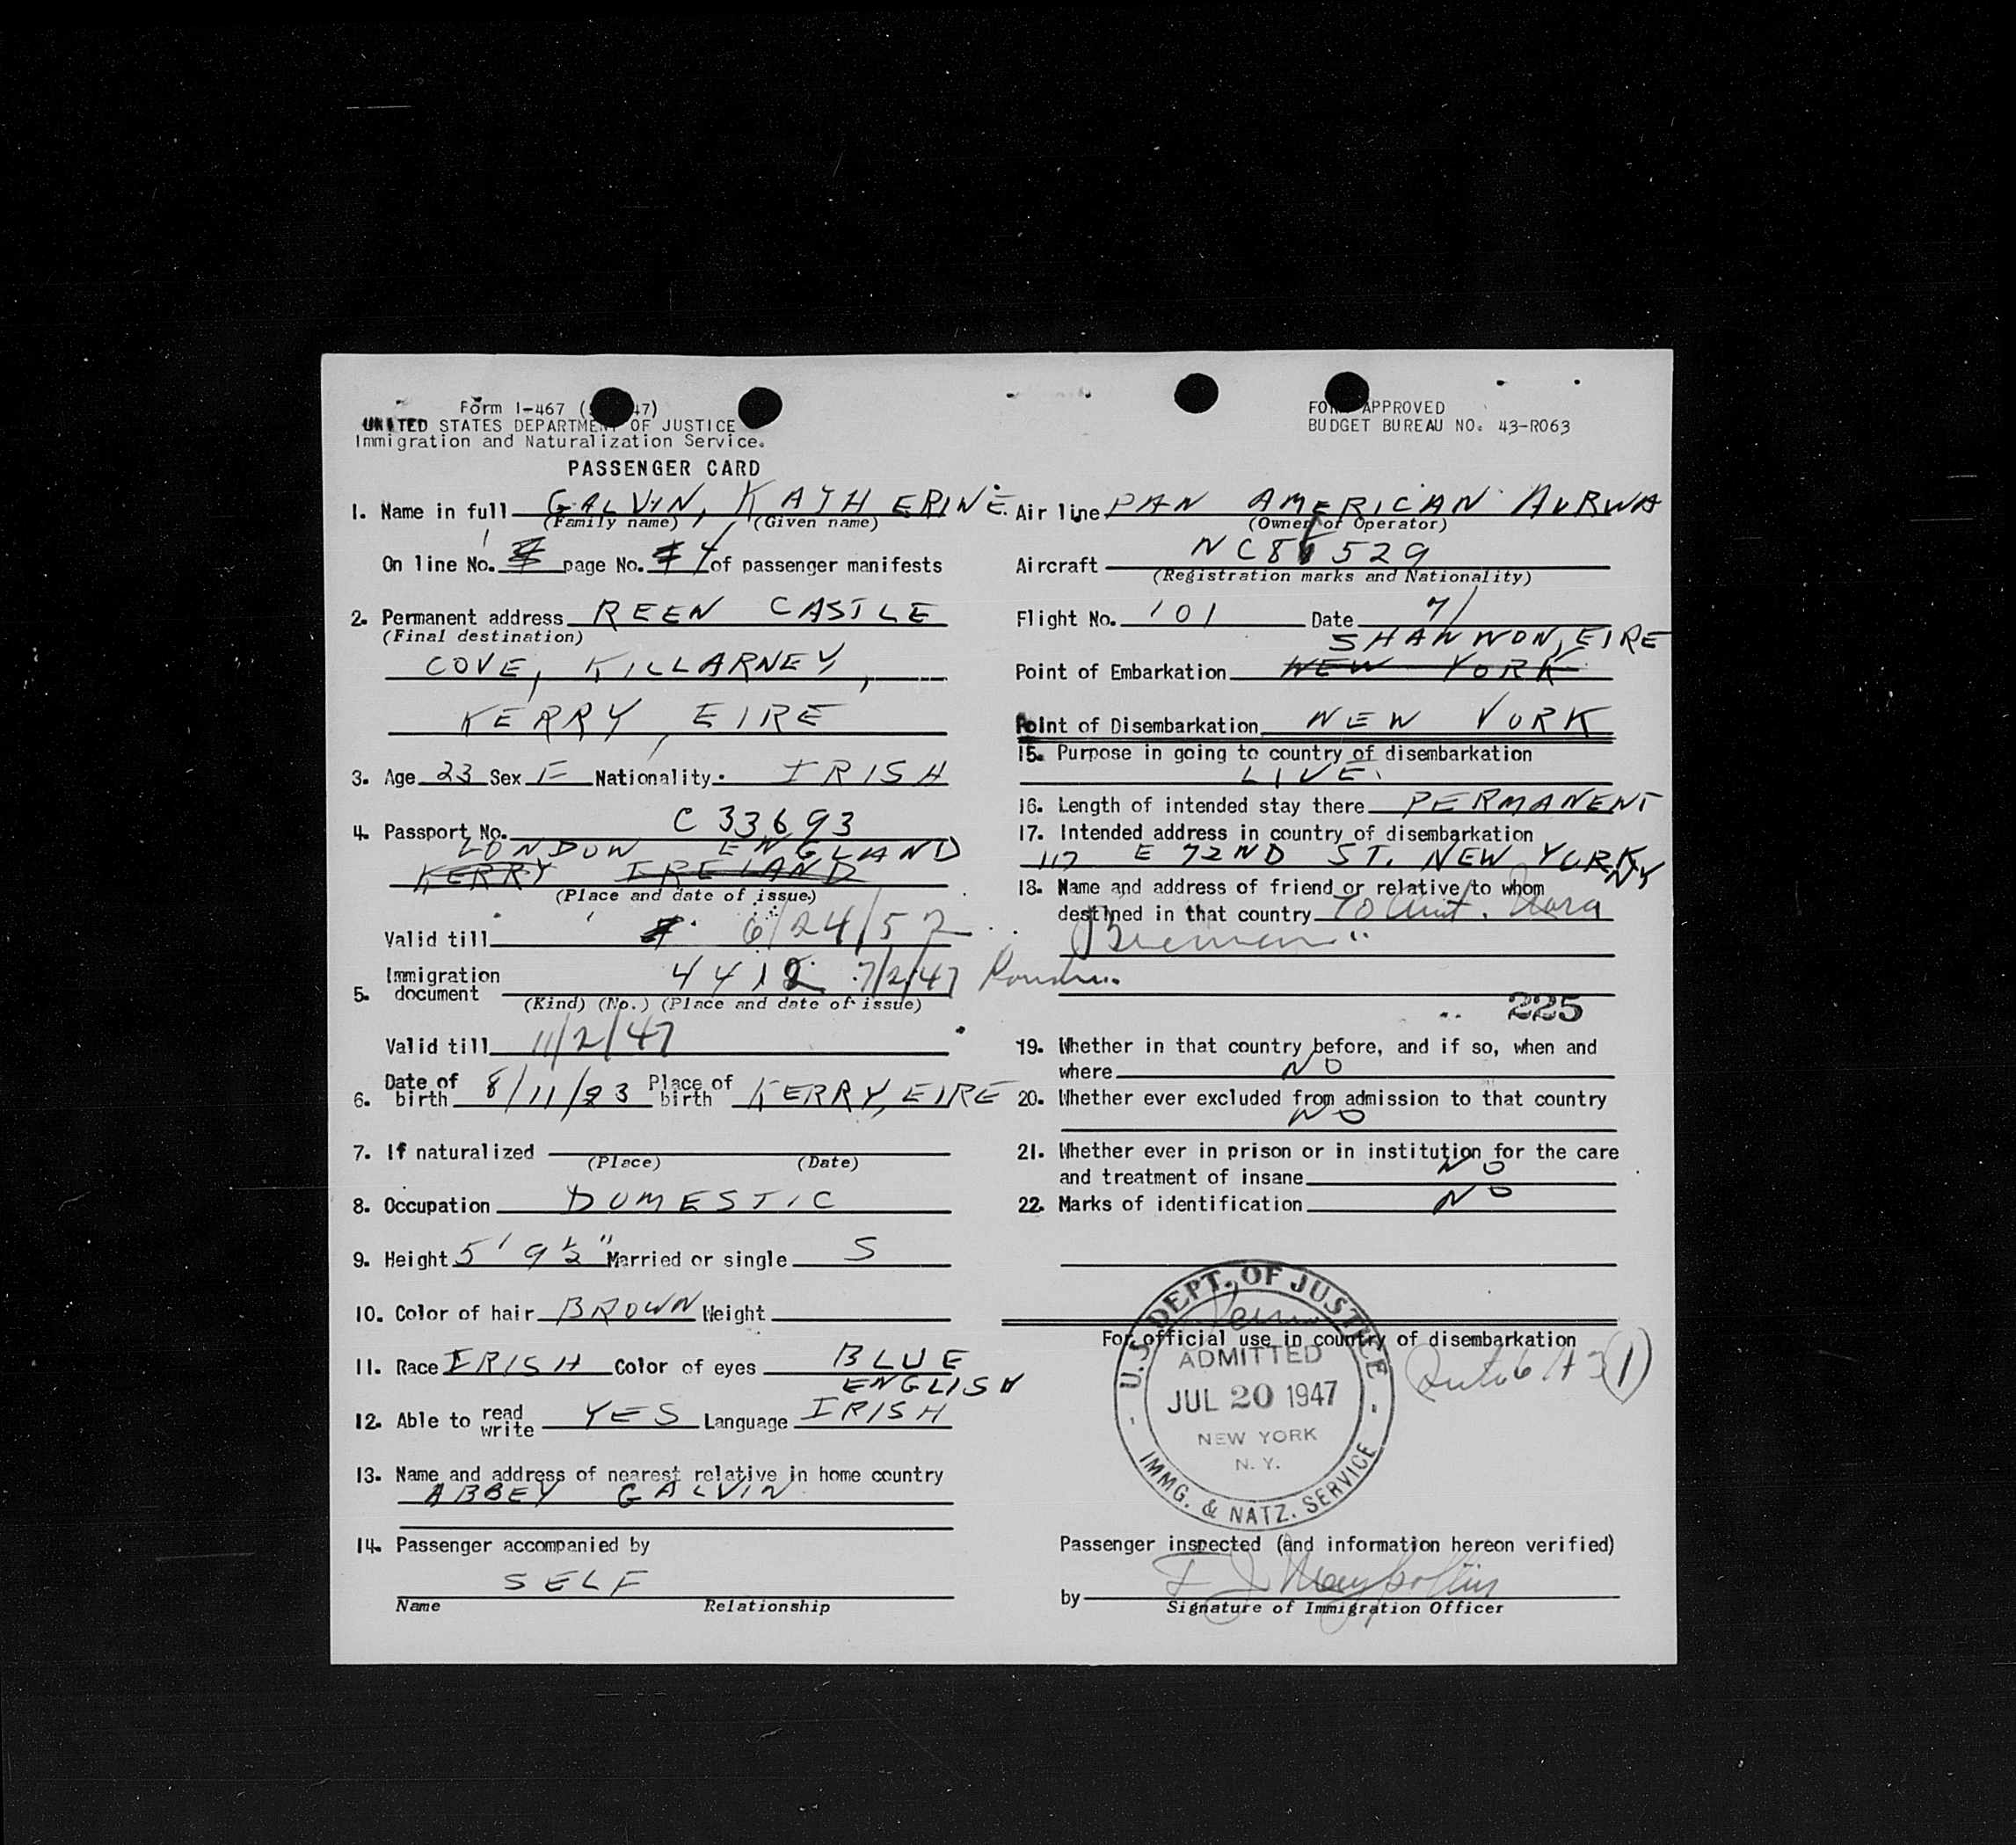 Form I-467 ( 47)
UNITED STATES DEPARTMENT OF JUSTICE
Immigration and Naturalization Service.
FORM APPROVED
BUDGET BUREAU NO. 43-R063
PASSENGER CARD
1. Name in full GALVIN, KATHERINE.
(Family name) (Given name)
1
On line No. page No. 4 of passenger manifests
2. Permanent address REEN CASTLE
(Final destination)
COVE, KILLARNEY,
KERRY, EIRE
3. Age 23 Sex F Nationality. IRISH
4. Passport No. C 33693
LONDON ENGLAND
KERRY IRELAND
(Place and date of issue)
Valid till 6/24/52
5. Immigration document 4412 7/2/47 London
(Kind) (No.) (Place and date of issue)
Valid till 11/2/47
6. Date of birth 8/11/23 Place of birth KERRY, EIRE
7. If naturalized
(Place) (Date)
8. Occupation DOMESTIC
9. Height 5' 9½" Married or single S
10. Color of hair BROWN Weight
11. Race IRISH Color of eyes BLUE
ENGLISH
12. Able to read write YES Language IRISH
13. Name and address of nearest relative in home country
ABBEY GALVIN
14. Passenger accompanied by
SELF
Name Relationship
Air line PAN AMERICAN AURWA
(Owner or Operator)
Aircraft NC88529
(Registration marks and Nationality)
Flight No. 101 Date 7/
SHANNON, EIRE
Point of Embarkation NEW YORK
Point of Disembarkation NEW YORK
15. Purpose in going to country of disembarkation
LIVE.
16. Length of intended stay there PERMANENT
17. Intended address in country of disembarkation
117 E 72ND ST. NEW YORK NY
18. Name and address of friend or relative to whom
destined in that country To Aunt. Nora
225
19. Whether in that country before, and if so, when and
where NO
20. Whether ever excluded from admission to that country
NO
21. Whether ever in prison or in institution for the care
and treatment of insane NO
22. Marks of identification NO
For official use in country of disembarkation
U.S. DEPT. OF JUSTICE
ADMITTED
JUL 20 1947
NEW YORK
N. Y.
IMMG. & NATZ. SERVICE
Passenger inspected (and information hereon verified)
by
Signature of Immigration Officer